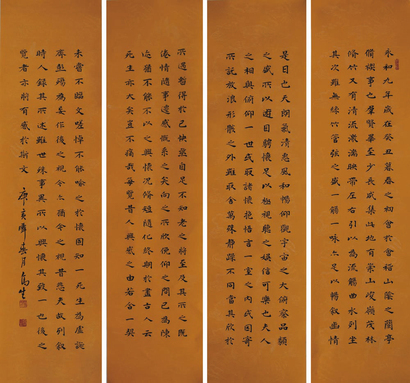 永和九年歲在癸丑暮春之初會於會稽山陰之蘭亭
脩禊事也羣賢畢至少長咸集此地有崇山峻領茂林
脩竹又有清流激湍映帶左右引以為流觴曲水列坐
其次雖無絲竹管弦之盛一觴一詠亦足以暢敘幽情
是日也天朗氣清惠風和暢仰觀宇宙之大俯察品類
之盛所以遊目騁懷足以極視聽之娛信可樂也夫人
之相與俯仰一世或取諸懷抱悟言一室之內或因寄
所託放浪形骸之外雖取舍萬殊靜躁不同當其欣於
所遇暫得於己快然自足不知老之將至及其所之既
倦情隨事遷感慨係之矣向之所欣俛仰之間已為陳
迹猶不能不以之興懷況脩短隨化終期於盡古人云
死生亦大矣豈不痛哉每覽昔人興感之由若合一契
未嘗不臨文嗟悼不能喻之於懷固知一死生為虛誕
齊彭殤為妄作後之視今亦猶今之視昔悲夫故列敘
時人錄其所述雖世殊事異所以興懷其致一也後之
覽者亦將有感於斯文 庚寅